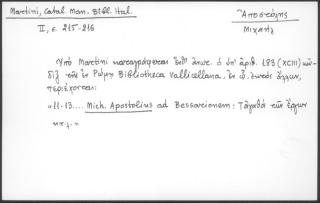 Martini, Catal. Man. Bibl. Ital.
II, σ. 215-216
Ἀποστόλης
Μιχαὴλ
Ὑπὸ Martini καταγράφεται ὁ ὑπ' ἀριθ. 183 (XCIII) κῶ-
διξ τῆς ἐν Ρώμῃ Bibliotheca Vallicellana, ἐν ᾧ, ἐκτὸς ἄλλων,
περιέχεται:
"11-13.... Mich. Apostolius ad Bessarionem: Τἀγαθὰ τῶν ἔργων
κτλ."